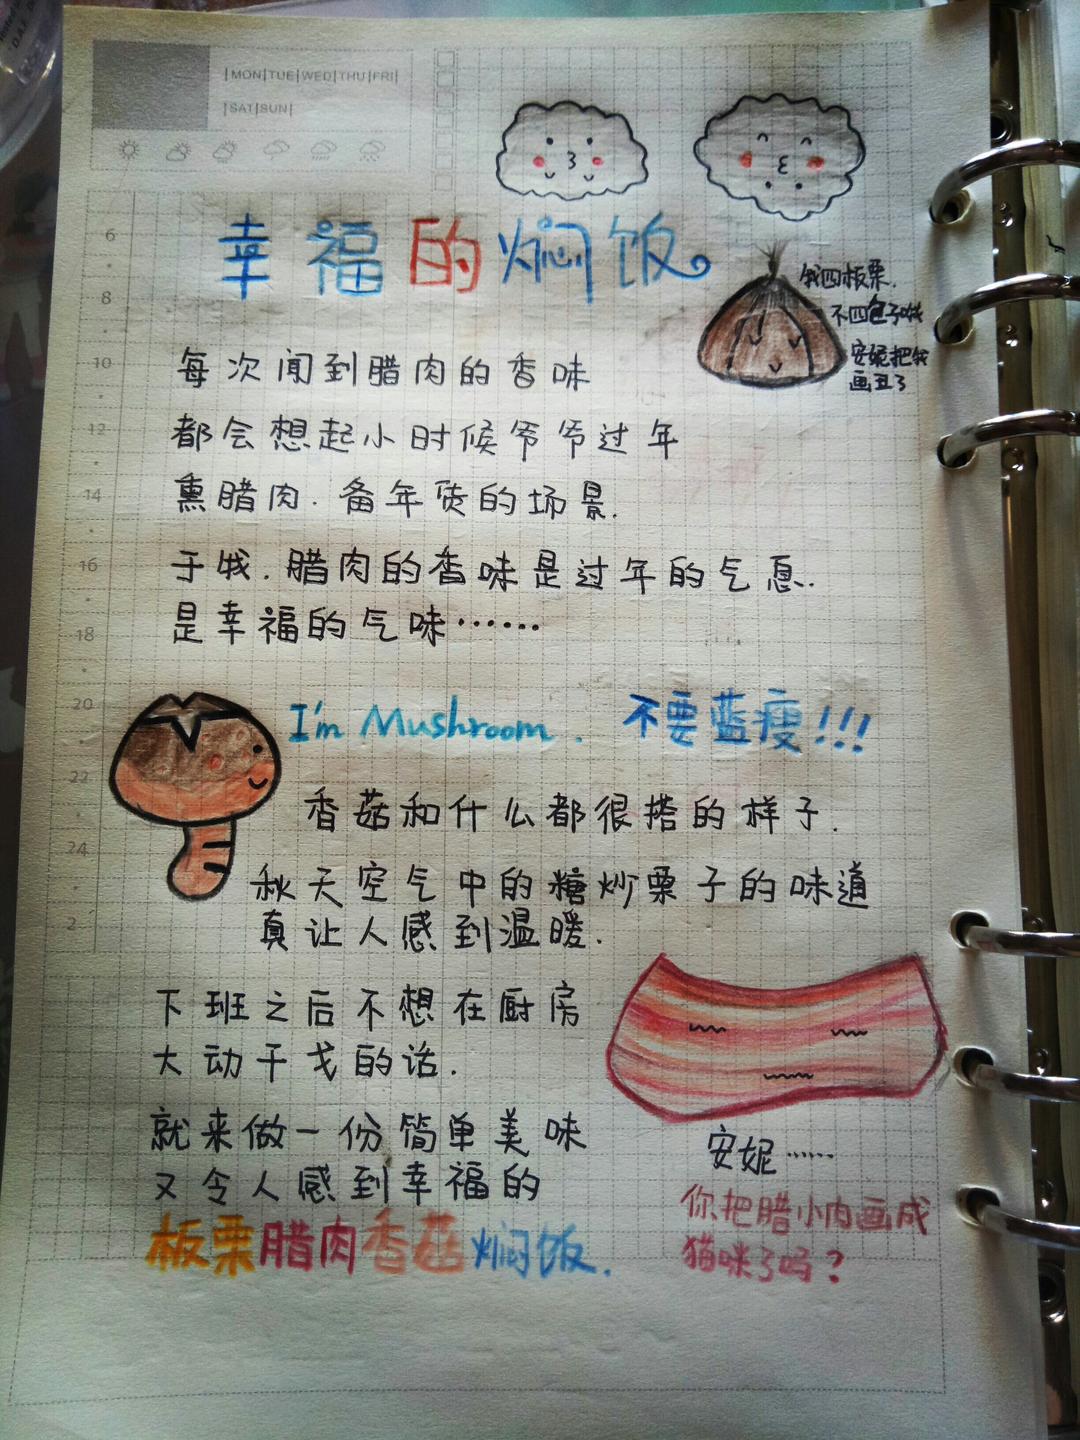 MON|TUE|WED|THU|FRI
SAT|SUN
幸福的焖饭。
俄四板栗.
不四包子哦
安妮把我
画丑了
6
8
10
12
14
16
18
20
22
24
2
每次闻到腊肉的香味
都会想起小时候爷爷过年
熏腊肉.备年货的场景.
于俄.腊肉的香味是过年的气息.
是幸福的气味……
I'm Mushroom. 不要蓝瘦!!!
香菇和什么都很搭的样子.
秋天空气中的糖炒栗子的味道
真让人感到温暖.
下班之后不想在厨房
大动干戈的话.
就来做一份简单美味
又令人感到幸福的
板栗腊肉香菇焖饭.
安妮……
你把腊小肉画成
猫咪了吗?